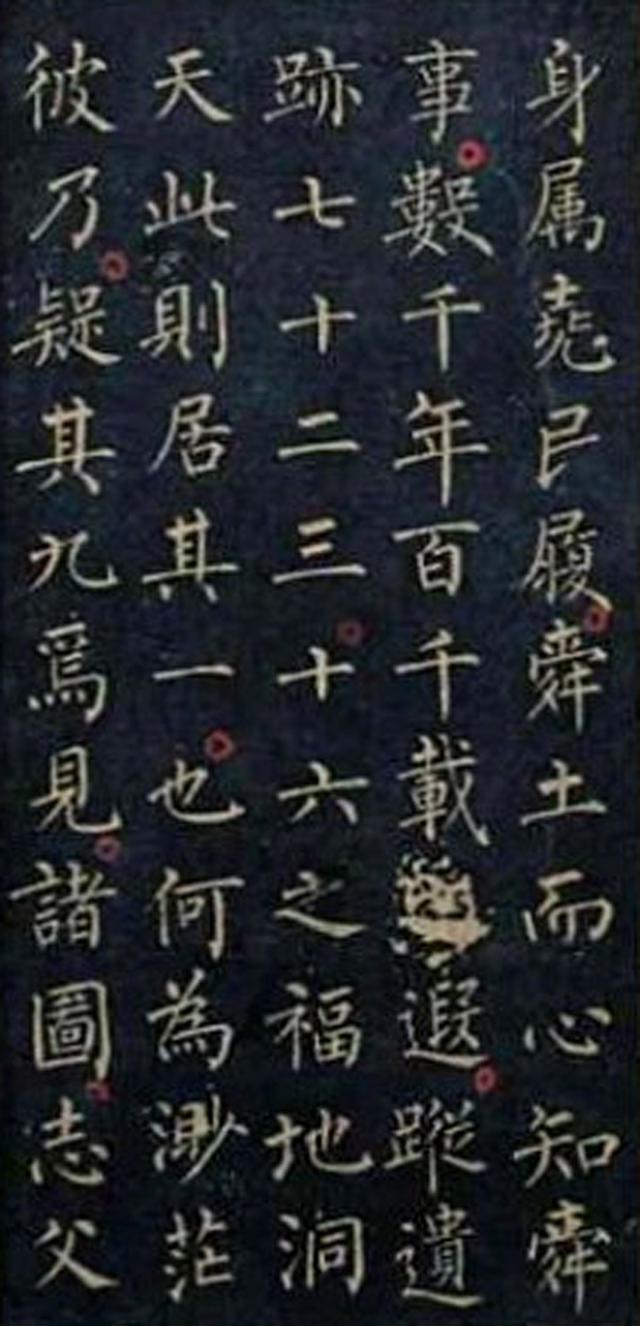 身属尭巳履舜土而心知舜
事數千年百千載遐蹤遺
跡七十二三十六之福地洞
天此則居其一也何為渺茫
彼乃疑其九焉見諸圖志父